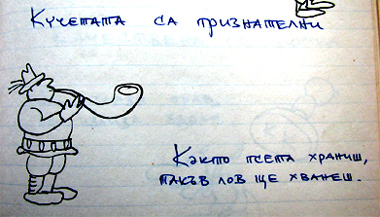 Кучетата са признателни
Както псета храниш,
такъв лов ще хванеш.